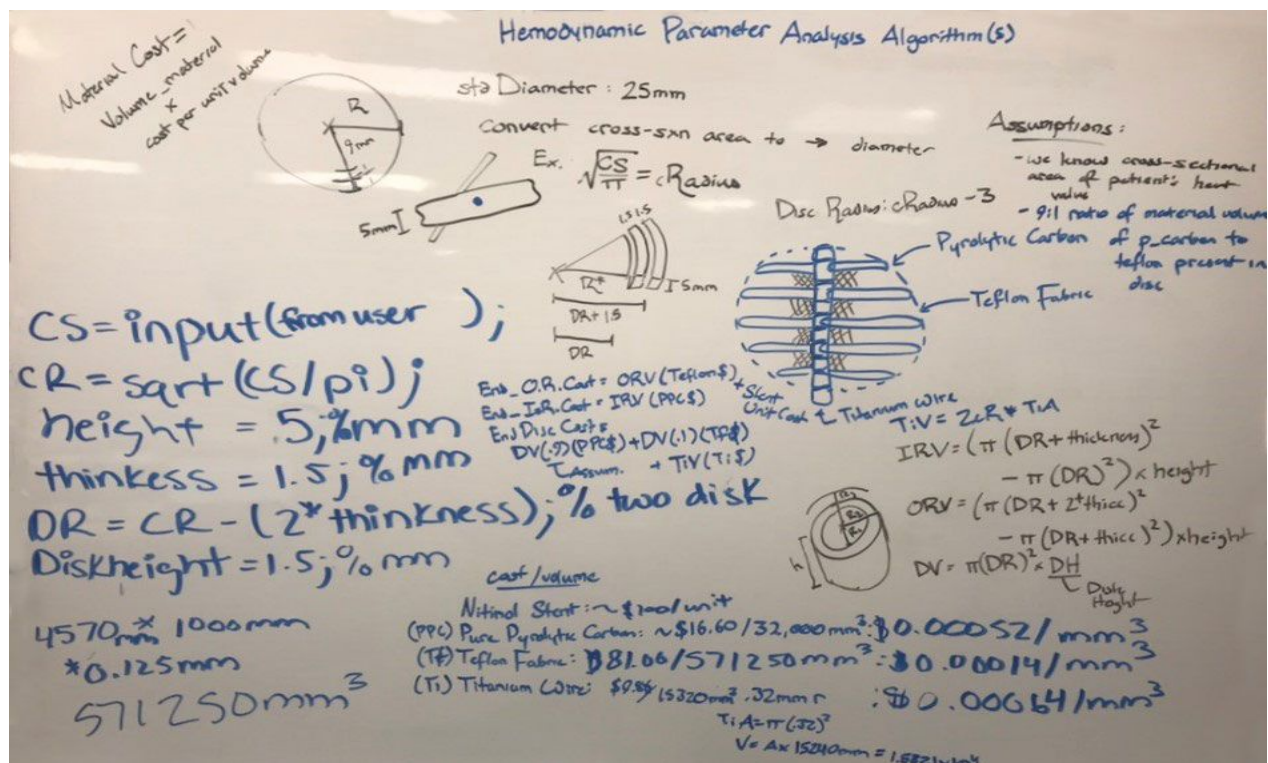 Hemodynamic Parameter Analysis Algorithm(s)
Material Cost =
Volume_material
x
cost per unit volume
R
9mm
std Diameter: 25mm
convert cross-sxn area to → diameter
Ex. √(CS/π) = cRadius
5mm
Disc Radius: cRadius - 3
Assumptions:
- we know cross-sectional
area of patient's heart
valve
- 9:1 ratio of material volume
of p_carbon to
teflon present in
disc
1.5 1.5
R*
5mm
DR + 1.5
DR
Pyrolytic Carbon
Teflon Fabric
Titanium Wire
CS = input(from user );
CR = sqrt(CS/pi);
height = 5;%mm
thinkess = 1.5;%mm
DR = CR - (2*thinkness);% two disk
Diskheight = 1.5;%mm
End_O.R.Cost = ORV(Teflon$)
End_I.R.Cost = IRV(PPC$)
End Disc Cost =
DV(.9)(PPC$) + DV(.1)(Tf$)
Assum. + TiV(Ti$)
+ Stent
Unit Cost
TiV = 2cR * TiA
IRV = (π(DR + thickness)²
- π(DR)²) x height
ORV = (π(DR + 2*thicc)²
- π(DR + thicc)²) x height
DV = π(DR)² x DH
Disk
Height
h
4570mm * 1000mm
*0.125mm
571250mm³
cost/volume
Nitinol Stent: ~$200/unit
(PPC) Pure Pyrolytic Carbon: ~$16.60/32,000mm³: $0.00052/mm³
(Tf) Teflon Fabric: $81.06/571250mm³: $0.00014/mm³
(Ti) Titanium Wire: .32mm r : $0.00064/mm³
TiA = π(.32)²
V = A x 15240mm =